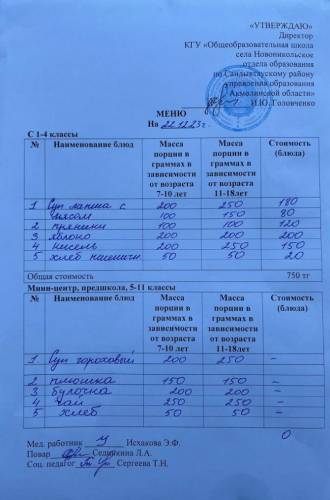 «УТВЕРЖДАЮ»
Директор
КГУ «Общеобразовательная школа
села Новоникольское
отдела образования
по Сандыктаускому району
управления образования
Акмолинской области»
И.Ю.Головченко
МЕНЮ
На 22.12.23г.
С 1-4 классы
№ Наименование блюд Масса порции в граммах в зависимости от возраста 7-10 лет Масса порции в граммах в зависимости от возраста 11-18лет Стоимость (блюда)
1 Суп лапша с 200 250 180
мясом 100 150 80
2 пряники 100 100 120
3 яблоко 200 200 200
4 кисель 200 250 150
5 хлеб пшеничн 50 50 20
Общая стоимость 750 тг
Мини-центр, предшкола, 5-11 классы
№ Наименование блюд Масса порции в граммах в зависимости от возраста 7-10 лет Масса порции в граммах в зависимости от возраста 11-18лет Стоимость (блюда)
1 Суп гороховый 200 250 –
2 плюшка 150 150 –
3 булочка 200 200 –
4 чай 250 250 –
5 хлеб 50 50 –
0
Мед. работник Исхакова Э.Ф.
Повар Селинкина Л.А.
Соц. педагог Сергеева Т.Н.